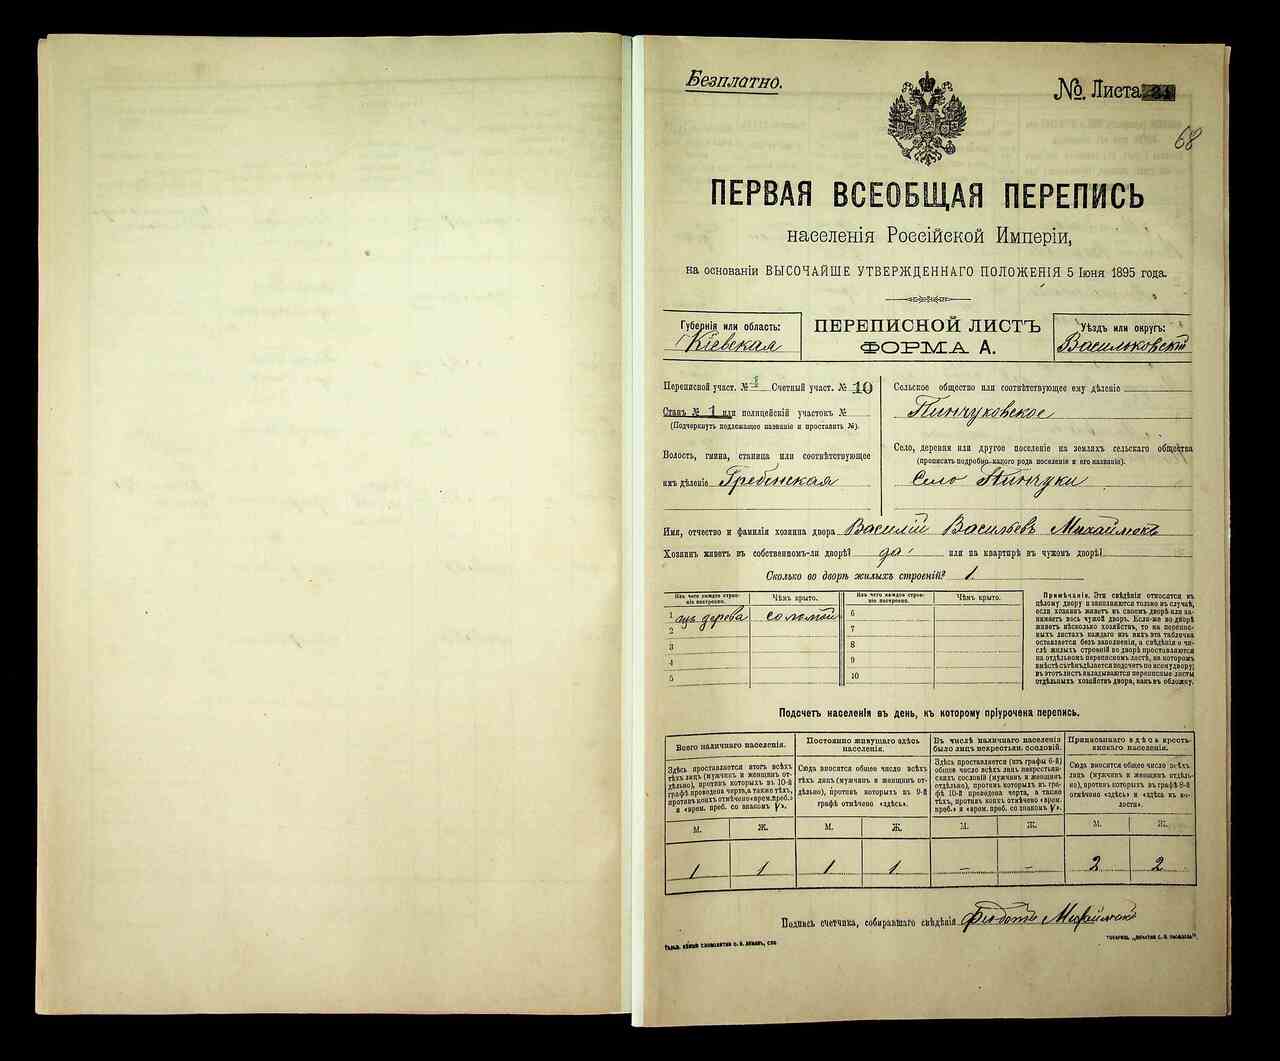 Безплатно.
№ Листа
68
ПЕРВАЯ ВСЕОБЩАЯ ПЕРЕПИСЬ
населенія Россійской Имперіи,
на основаніи ВЫСОЧАЙШЕ УТВЕРЖДЕННАГО ПОЛОЖЕНІЯ 5 Іюня 1895 года.
Губернія или область:
Кіевская
ПЕРЕПИСНОЙ ЛИСТЪ
ФОРМА А.
Уѣздъ или округъ:
Васильковскій
Переписной участ. № 1 Счетный участ. № 10
Станъ № 1 или полицейскій участокъ №
(Подчеркнуть подлежащее названіе и проставить №).
Волость, гмина, станица или соотвѣтствующее
имъ дѣленіе Гребенская
Сельское общество или соотвѣтствующее ему дѣленіе
Пинчуковское
Село, деревня или другое поселеніе на земляхъ сельскаго общества
(прописать подробно какого рода поселеніе и его названіе).
Село Пинчуки
Имя, отчество и фамилія хозяина двора Василій Васильевъ Михайлюкъ
Хозяинъ живетъ въ собственномъ-ли дворѣ? да или на квартирѣ въ чужомъ дворѣ?
Сколько во дворѣ жилыхъ строеній? 1.
Изъ чего каждое строеніе построено. Чѣмъ крыто. Изъ чего каждое строеніе построено. Чѣмъ крыто.
1 изъ дерева соломой 6
2 7
3 8
4 9
5 10
Примѣчаніе. Эти свѣдѣнія относятся къ
цѣлому двору и заполняются только въ случаѣ,
если хозяинъ живетъ въ своемъ дворѣ или занимаетъ
весь чужой дворъ. Если-же во дворѣ
живетъ нѣсколько хозяйствъ, то на переписныхъ
листахъ каждаго изъ нихъ эта табличка
оставляется безъ заполненія, а свѣдѣнія о числѣ
жилыхъ строеній во дворѣ проставляются
на отдѣльномъ переписномъ листѣ, на которомъ
вмѣстѣ съ тѣмъ дѣлается подсчетъ по всему двору;
въ этотъ листъ вкладываются переписные листы
отдѣльныхъ хозяйствъ двора, какъ въ обложку.
Подсчетъ населенія въ день, къ которому пріурочена перепись.
Всего наличнаго населенія.
Здѣсь проставляется итогъ всѣхъ
тѣхъ лицъ (мужчинъ и женщинъ отдѣльно),
противъ которыхъ въ 10-й
графѣ проведена черта, а также тѣхъ,
противъ коихъ отмѣчено «врем. преб.»
и «врем. преб. со знакомъ V».
Постоянно живущаго здѣсь
населенія.
Сюда вносятся общее число всѣхъ
тѣхъ лицъ (мужчинъ и женщинъ отдѣльно),
противъ которыхъ въ 9-й
графѣ отмѣчено «здѣсь».
Въ числѣ наличнаго населенія
было лицъ некрестьян. сословій.
Здѣсь проставляется (изъ графы 6-й)
общее число всѣхъ лицъ некрестьянскихъ
сословій (мужчинъ и женщинъ
отдѣльно), противъ которыхъ въ графѣ
10-й проведена черта, а также
тѣхъ, противъ коихъ отмѣчено «врем.
преб.» и «врем. преб. со знакомъ V».
Приписаннаго здѣсь крестьянскаго
населенія.
Сюда вносятся общее число всѣхъ
лицъ (мужчинъ и женщинъ отдѣльно),
противъ которыхъ въ графѣ 8-й
отмѣчено «здѣсь» и «здѣсь въ волости».
М. Ж. М. Ж. М. Ж. М. Ж.
1 1 1 1 — — 2 2
Подпись счетчика, собиравшаго свѣдѣнія Феодотъ Михайлюкъ